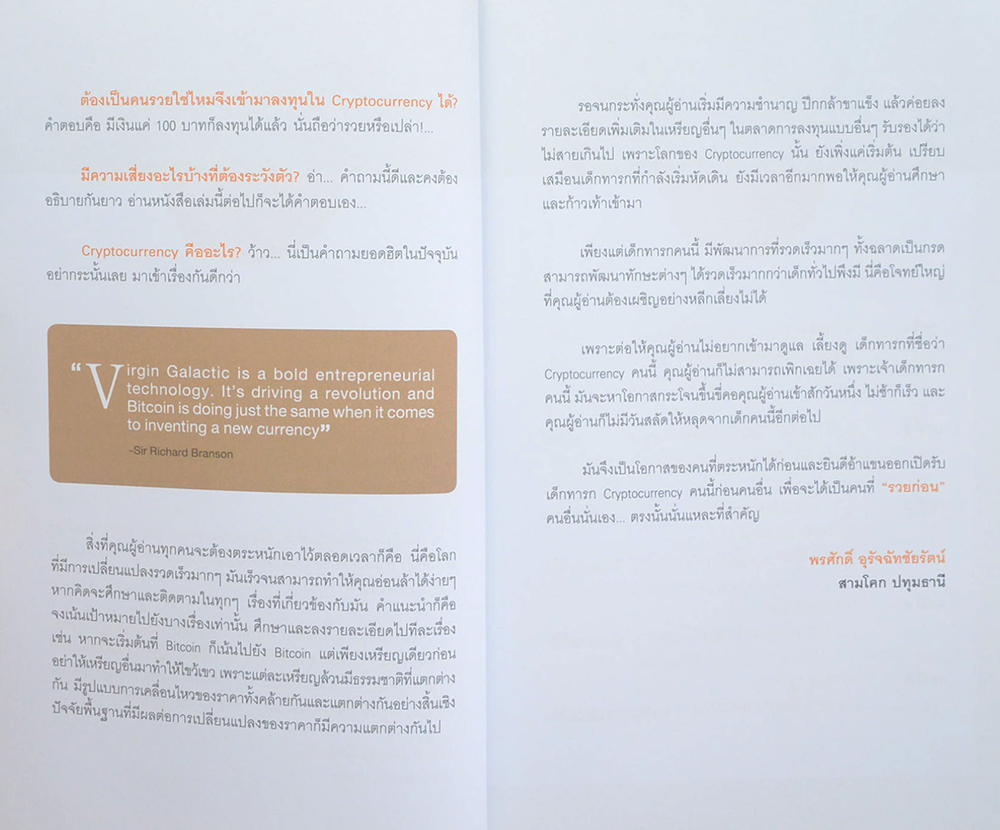 ต้องเป็นคนรวยใช่ไหมจึงเข้ามาลงทุนใน Cryptocurrency ได้?
คำตอบคือ มีเงินแค่ 100 บาทก็ลงทุนได้แล้ว นั่นถือว่ารวยหรือเปล่า!...
มีความเสี่ยงอะไรบ้างที่ต้องระวังตัว? อ่า... คำถามนี้ดีและคงต้อง
อธิบายกันยาว อ่านหนังสือเล่มนี้ต่อไปก็จะได้คำตอบเอง...
Cryptocurrency คืออะไร? ว้าว... นี่เป็นคำถามยอดฮิตในปัจจุบัน
อย่ากระนั้นเลย มาเข้าเรื่องกันดีกว่า
“Virgin Galactic is a bold entrepreneurial
technology. It's driving a revolution and
Bitcoin is doing just the same when it comes
to inventing a new currency”
-Sir Richard Branson
สิ่งที่คุณผู้อ่านทุกคนจะต้องตระหนักเอาไว้ตลอดเวลาก็คือ นี่คือโลก
ที่มีการเปลี่ยนแปลงรวดเร็วมากๆ มันเร็วจนสามารถทำให้คุณอ่อนล้าได้ง่ายๆ
หากคิดจะศึกษาและติดตามในทุกๆ เรื่องที่เกี่ยวข้องกับมัน คำแนะนำก็คือ
จงเน้นเป้าหมายไปยังบางเรื่องเท่านั้น ศึกษาและลงรายละเอียดไปทีละเรื่อง
เช่น หากจะเริ่มต้นที่ Bitcoin ก็เน้นไปยัง Bitcoin แต่เพียงเหรียญเดียวก่อน
อย่าให้เหรียญอื่นมาทำให้ไขว้เขว เพราะแต่ละเหรียญล้วนมีธรรมชาติที่แตกต่าง
กัน มีรูปแบบการเคลื่อนไหวของราคาทั้งคล้ายกันและแตกต่างกันอย่างสิ้นเชิง
ปัจจัยพื้นฐานที่มีผลต่อการเปลี่ยนแปลงของราคาก็มีความแตกต่างกันไป
รอจนกระทั่งคุณผู้อ่านเริ่มมีความชำนาญ ปีกกล้าขาแข็ง แล้วค่อยลง
รายละเอียดเพิ่มเติมในเหรียญอื่นๆ ในตลาดการลงทุนแบบอื่นๆ รับรองได้ว่า
ไม่สายเกินไป เพราะโลกของ Cryptocurrency นั้น ยังเพิ่งแค่เริ่มต้น เปรียบ
เสมือนเด็กทารกที่กำลังเริ่มหัดเดิน ยังมีเวลาอีกมากพอให้คุณผู้อ่านศึกษา
และก้าวเท้าเข้ามา
เพียงแต่เด็กทารกคนนี้ มีพัฒนาการที่รวดเร็วมากๆ ทั้งฉลาดเป็นกรด
สามารถพัฒนาทักษะต่างๆ ได้รวดเร็วมากกว่าเด็กทั่วไปพึงมี นี่คือโจทย์ใหญ่
ที่คุณผู้อ่านต้องเผชิญอย่างหลีกเลี่ยงไม่ได้
เพราะต่อให้คุณผู้อ่านไม่อยากเข้ามาดูแล เลี้ยงดู เด็กทารกที่ชื่อว่า
Cryptocurrency คนนี้ คุณผู้อ่านก็ไม่สามารถเพิกเฉยได้ เพราะเจ้าเด็กทารก
คนนี้ มันจะหาโอกาสกระโจนขึ้นขี่คอคุณผู้อ่านเข้าสักวันหนึ่ง ไม่ช้าก็เร็ว และ
คุณผู้อ่านก็ไม่มีวันสลัดให้หลุดจากเด็กคนนี้อีกต่อไป
มันจึงเป็นโอกาสของคนที่ตระหนักได้ก่อนและยินดีอ้าแขนออกเปิดรับ
เด็กทารก Cryptocurrency คนนี้ก่อนคนอื่น เพื่อจะได้เป็นคนที่ “รวยก่อน”
คนอื่นนั่นเอง... ตรงนั้นนั่นแหละที่สำคัญ
พรศักดิ์ อุรัจฉัทชัยรัตน์
สามโคก ปทุมธานี